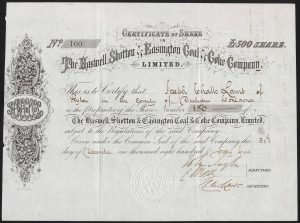 CERTIFICATE OF SHARE
IN
Nº 160
£500 SHARE.
The Haswell, Shotton & Easington Coal and Coke Company,
LIMITED.
This is to Certify that Joseph Challo Lamb of
in the County of Durham
is the Proprietor of the Share Number 160 of
The Haswell, Shotton & Easington Coal & Coke Company, Limited,
subject to the Regulations of the said Company.
Given under the Common Seal of the said Company the
day of December one thousand eight hundred and
DIRECTORS.
SECRETARY.